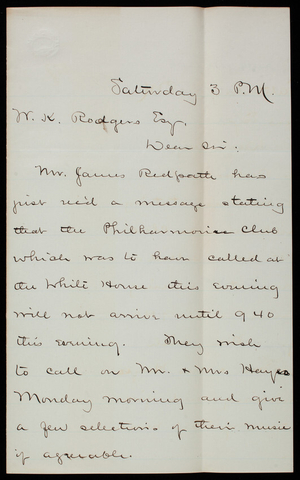 Saturday 3 P.M.
W. K. Rodgers Esq.
Dear Sir:
Mr. James Redpath has
just rec'd a message stating
that the Philharmonic Club
which was to have called at
the White House this evening
will not arrive until 9 40
this evening. They wish
to call on Mr. & Mrs Hayes
Monday morning and give
a few selections of their music
if agreeable.